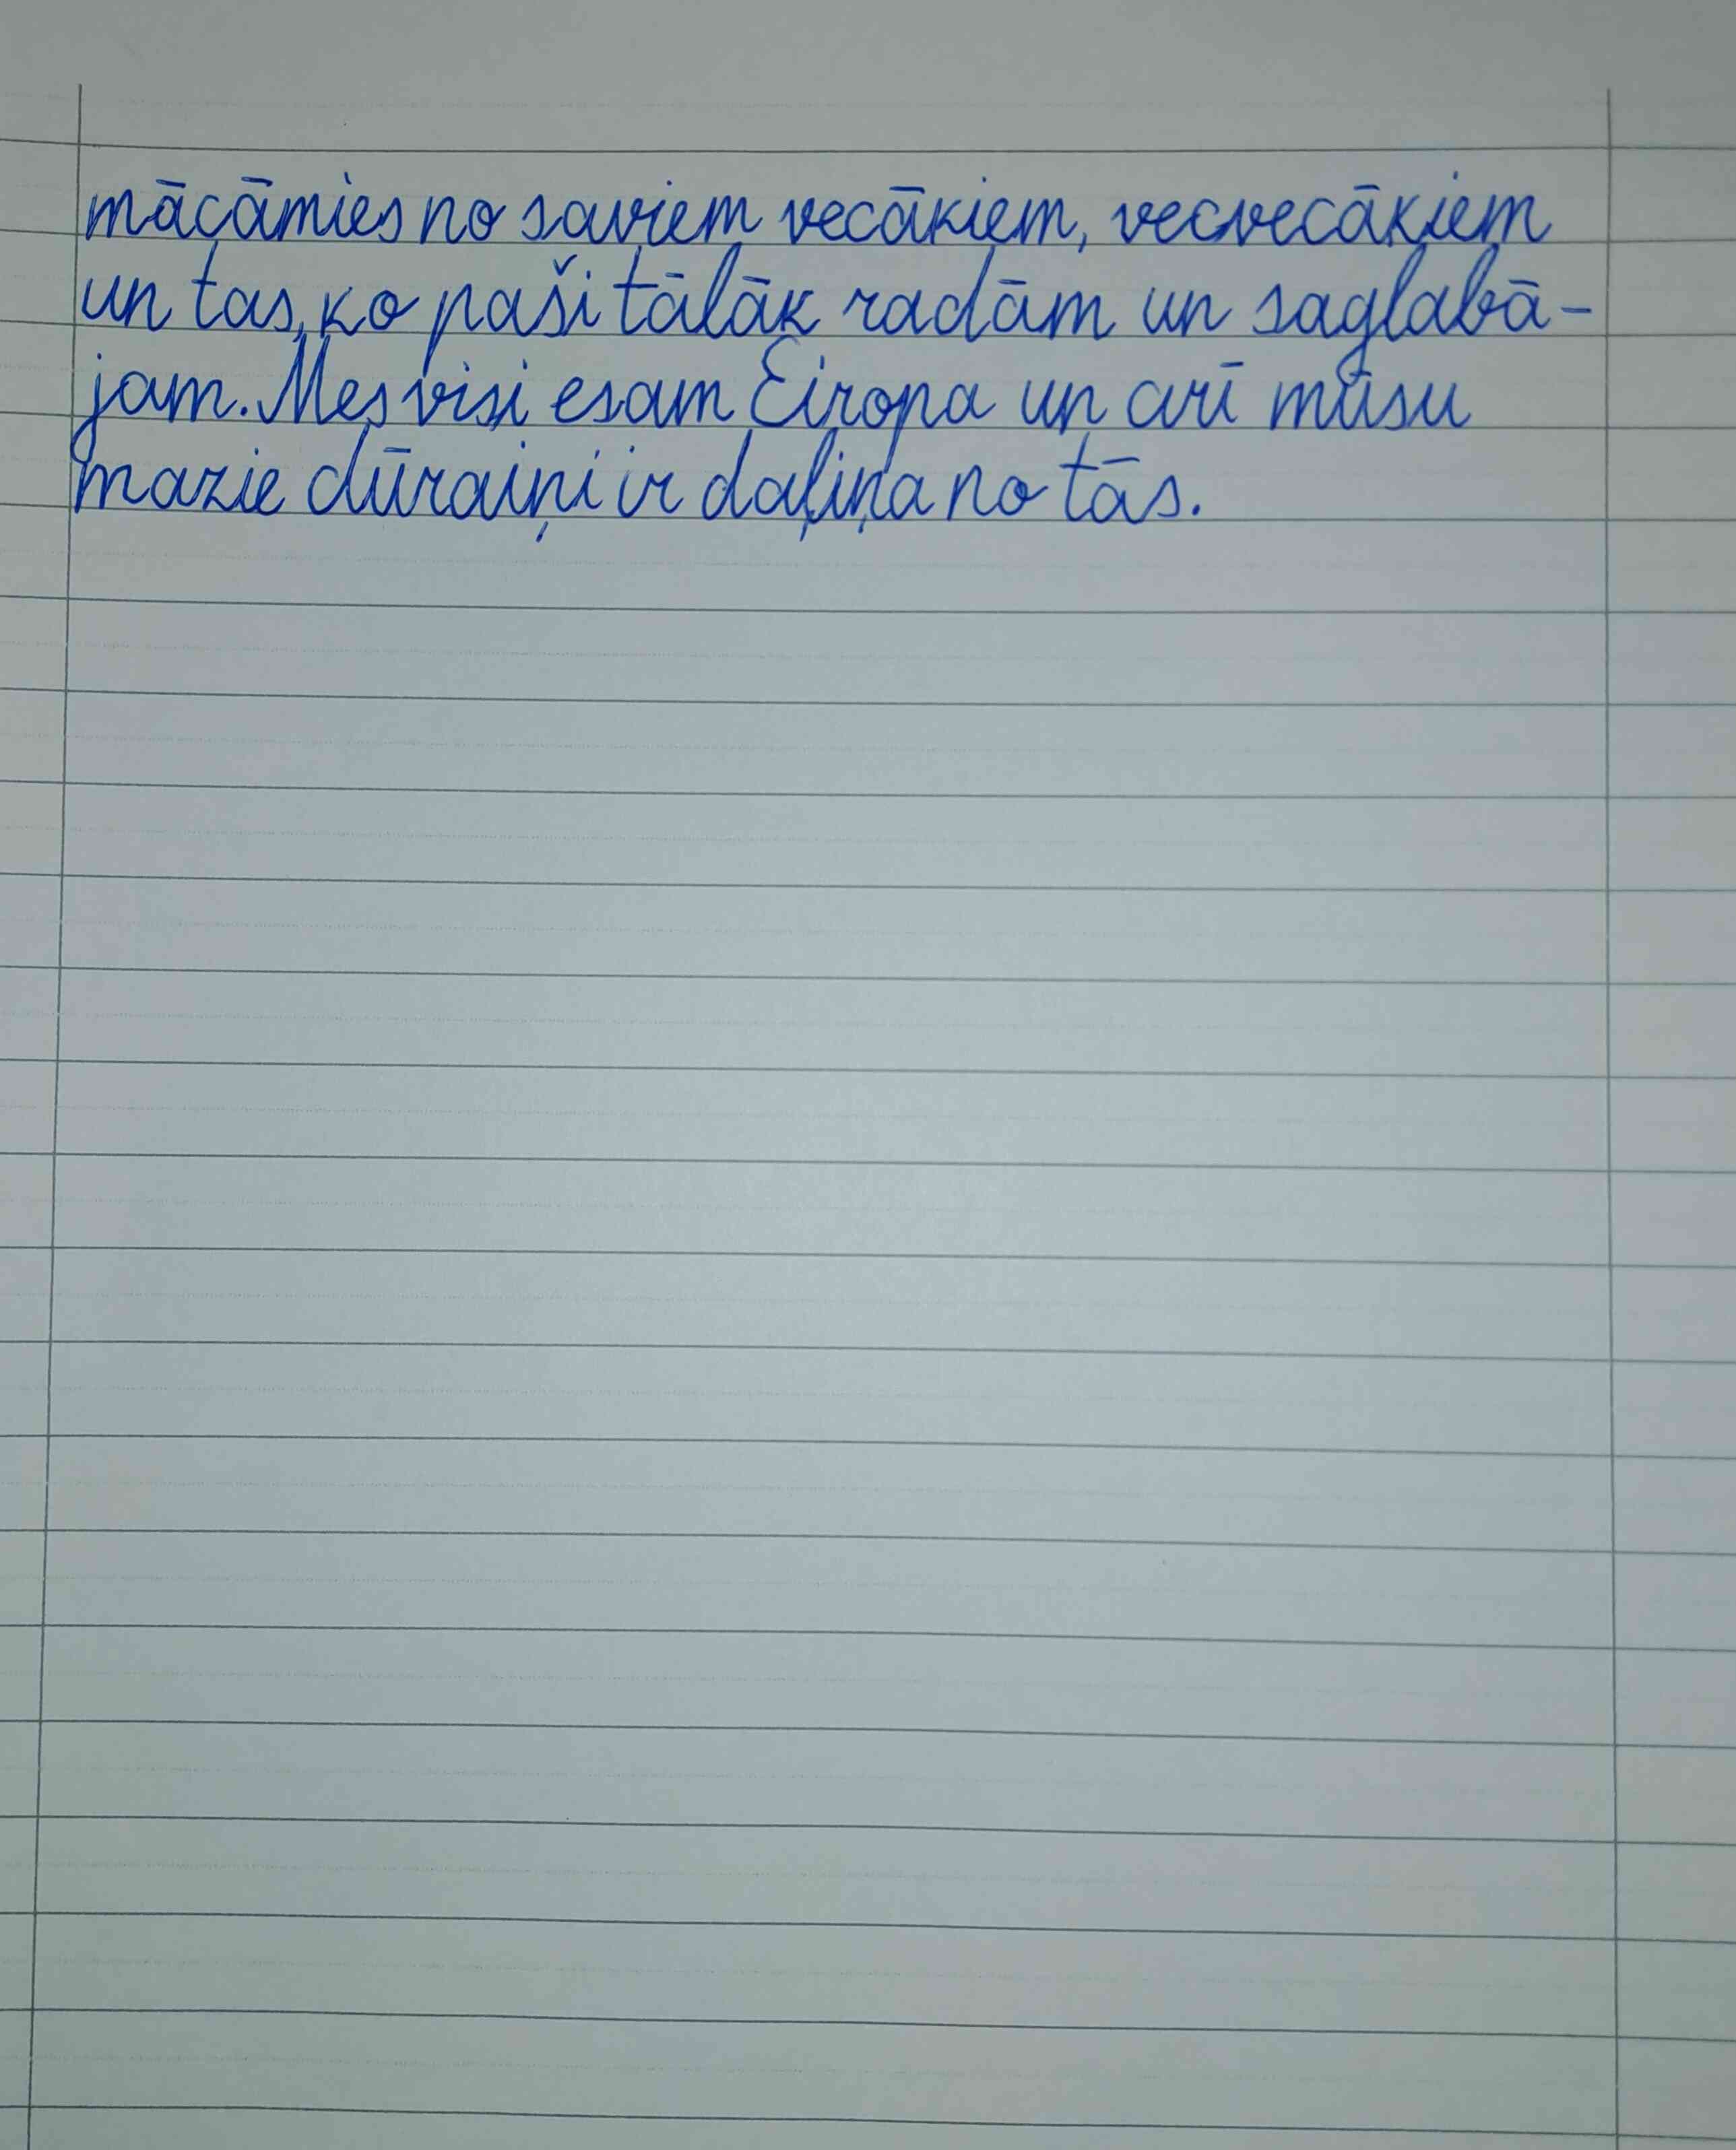 mācāmies no saviem vecākiem, vecvecākiem
un tas, ko paši tālāk radām un saglabā-
jam. Mes visi esam Eiropa un arī mūsu
mazie dūraiņi ir daļiņa no tās.